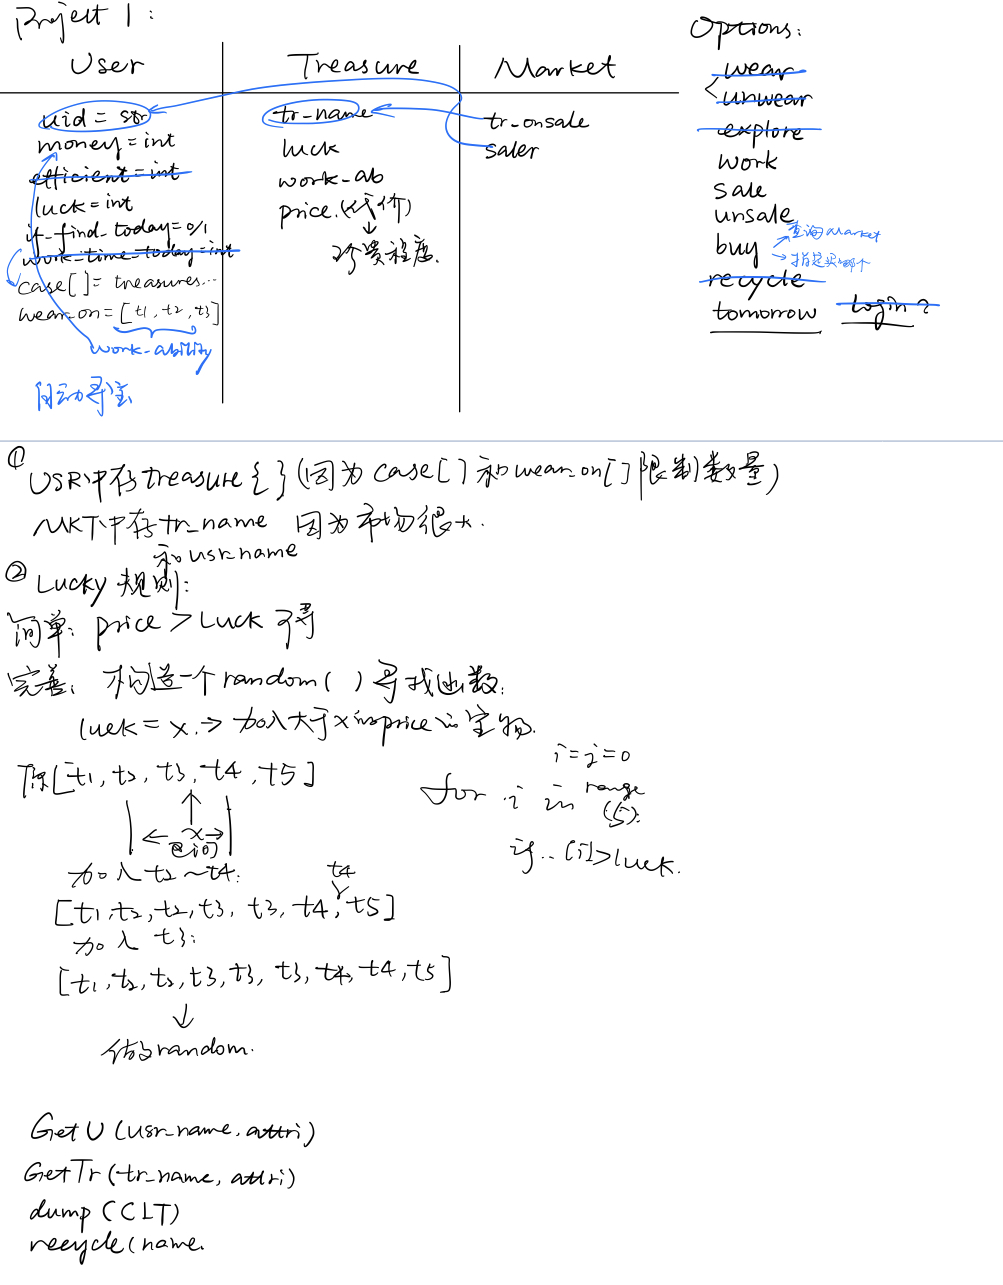 Project 1:
User
Treasure
Market
uid = str
money = int
efficient = int
luck = int
if_find_today = 0/1
work_time_today = int
case[] = treasures...
wear_on = [t1, t2, t3]
work_ability
自动寻宝
tr_name
luck
work_ab
price. (代价)
珍贵程度.
tr_onsale
saler
Options:
wear
unwear
explore
work
sale
unsale
buy
查询market
指定买哪个
recycle
tomorrow
login ?
① USR中存treasure{} (因为case[]和wear_on[]限制数量)
MKT中存tr_name 因为市场很大.
和usr_name
② Lucky 规则:
简单: price > Luck 可寻
完善: 构造一个random( )寻找函数.
luck = x. → 加入大于x的price的宝物.
[t1, t2, t3, t4, t5]
← x →
加入t2~t4:
t4
[t1, t2, t2, t3, t3, t4, t5]
加入 t3:
[t1, t2, t2, t3, t3, t3, t4, t4, t5]
random.
i=j=0
for i in range (5):
if.. [i]>luck.
GetU (usr_name, attri)
GetTr (tr_name, attri)
dump (CLT)
recycle (name.